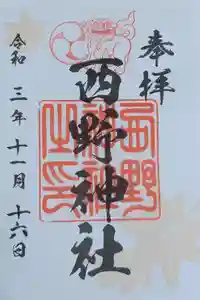 奉拝
西野神社
西野神社之印
令和三年十一月十六日